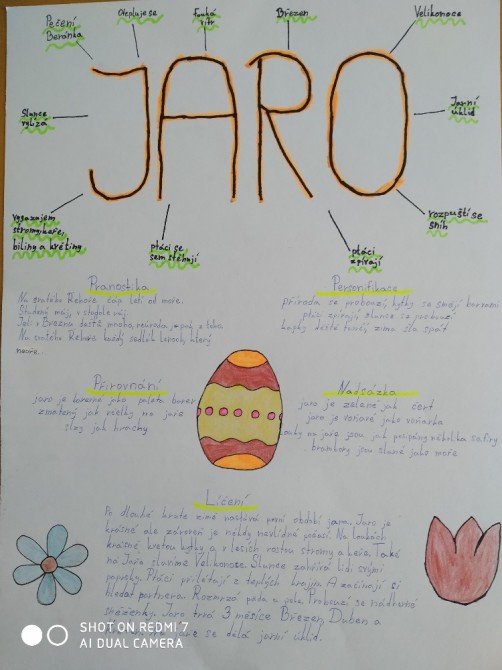 Pečení
Beránka
Otepluje se
Fouká
vítr
Březen
Velikonoce
JARO
Slunce
vylízá
Jarní
úklid
stromy, keře,
biliny a květiny
ptáci se
sem stěhují
ptáci
zpívají
rozpuští se
sníh
Pranostika
Na svatého Řehoře, čáp letí od moře.
Studený máj, v stodole ráj.
Na svatého Řehoře každý sedlák který
neoře.
Personifikace
příroda se probouzí, kytky se smějí
ptáci zpívají slunce se
kapky deště zima šla spát
Přirovnání
jaro je barevné jako paleta barev
zmatený jak včelky na jaře
Nadsázka
jaro je zelené jak čert
jaro je voňavé jako voňavka
louky na jaře jsou jak
brambory jsou slané jako moře
Líčení
Po dlouhé kruté zimě nastává první období jara. Jaro je
krásné ale zároveň je někdy nevlídné počasí. Na loukách
krásně kvetou kytky a v lesích rostou stromy a keře. Také
na Jaře slavíme Velikonoce. Slunce zahřívá lidi svými
paprsky. Ptáci přilétají z teplých krajin A začínají si
hledat partnera. Rozmrzá půda a pole. Probouzí se nádherné
sněženky. Jaro trvá 3 měsíce Březen, Duben a
se dělá jarní úklid.
SHOT ON REDMI 7
AI DUAL CAMERA